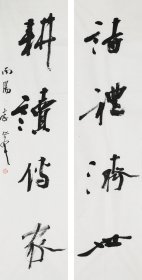 詩禮濟世
耕讀傳家
南陽